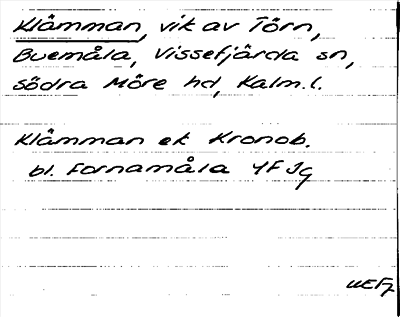 Klämman, vik av Törn,
Buemåla, Vissefjärda sn,
södra Möre hd, Kalm.l.
Klämman ek Kronob.
bl. Fornamåla 4F Jg